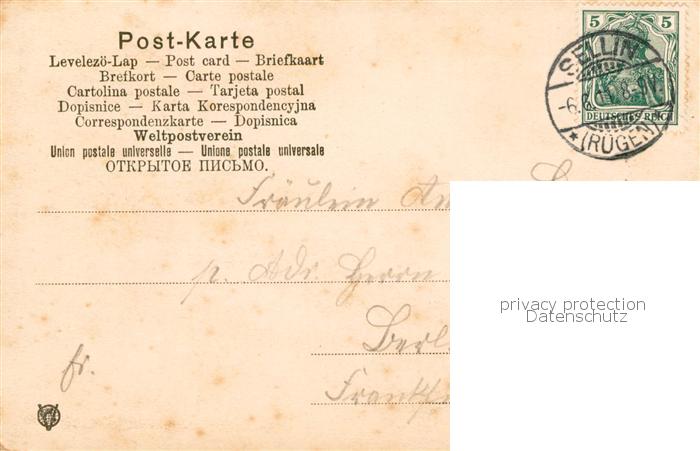 Post-Karte
Levelezö-Lap — Post card — Briefkaart
Brefkort — Carte postale
Cartolina postale — Tarjeta postal
Dopisnice — Karta Korespondencyjna
Correspondenzkarte — Dopisnica
Weltpostverein
Union postale universelle — Unione postale universale
ОТКРЫТОЕ ПИСЬМО.
5 5
DEUTSCHES REICH
SELLIN
(RÜGEN)
Fräulein
p. Adr. Herrn
privacy protection
Datenschutz
fr.